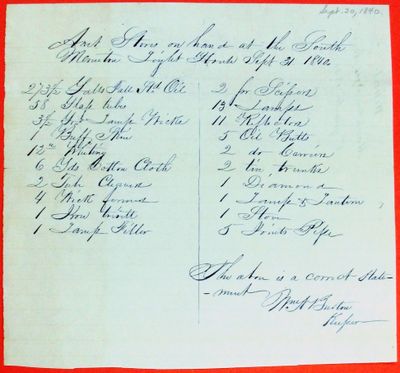 Sept. 20, 1840.
Amt Stores on hand at the South
Light House Sept 21 1840
273½ Galls Fall Std Oil
58 Glass tubes
3½ Gro Lamp Wicks
1 Buff Skin
12 Whiting
6 Yds Cotton Cloth
2 Tube Cleaners
4 Wick formers
1 Iron
1 Lamp Filler
2 pr Scissors
13 Lamps
11 Reflectors
5 Oil Butts
2 do Carriers
2 tin trunks
1 Diamond
1 Lamp & Lantern
1 Stove
5 Joints Pipe
The above is a correct state-
-ment
Wm A Burton
Keeper